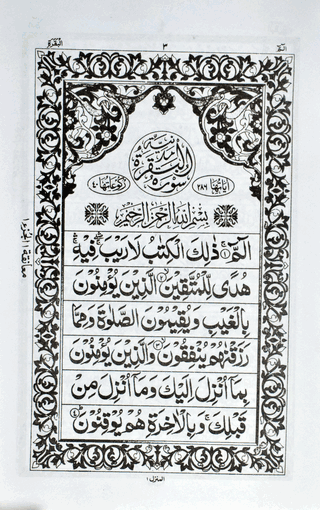 البقرة ٢ ٣ الۤمّۤ ١
سُوْرَةُ الْبَقَرَةِ مَدَنِيَّةٌ
اٰيَاتُهَا ٢٨٦
رُكُوْعَاتُهَا ٤٠
بِسْمِ اللّٰهِ الرَّحْمٰنِ الرَّحِيْمِ
الٓمّٓ ۚ﴿۱﴾ ذٰلِكَ الْكِتٰبُ لَا رَيْبَ ۛ فِيْهِ ۛ
هُدًى لِّلْمُتَّقِيْنَ ﴿۲﴾ الَّذِيْنَ يُؤْمِنُوْنَ
بِالْغَيْبِ وَيُقِيْمُوْنَ الصَّلٰوةَ وَمِمَّا
رَزَقْنٰهُمْ يُنْفِقُوْنَ ﴿۳﴾ وَالَّذِيْنَ يُؤْمِنُوْنَ
بِمَاۤ اُنْزِلَ اِلَيْكَ وَمَاۤ اُنْزِلَ مِنْ
قَبْلِكَ ۚ وَبِالْاٰخِرَةِ هُمْ يُوْقِنُوْنَ ﴿۴﴾
المنزل ١